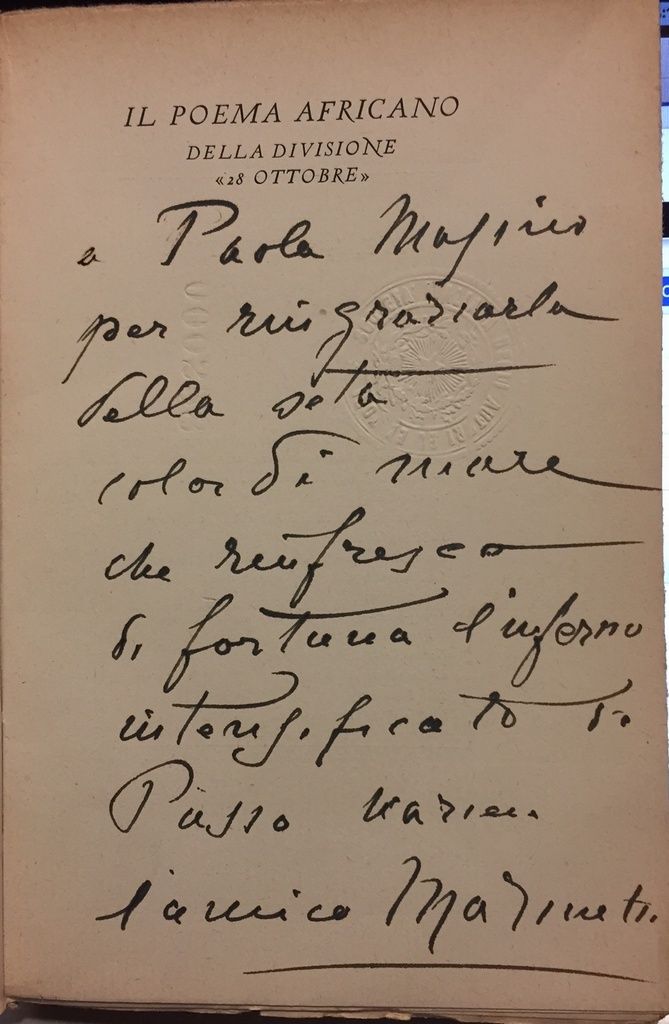 IL POEMA AFRICANO
DELLA DIVISIONE
«28 OTTOBRE»
a Paola Masino
per ringraziarla
della seta
color di mare
che rinfrescò
di fortuna l'inferno
intensificato di
Passo Uarieu
l'amico Marinetti